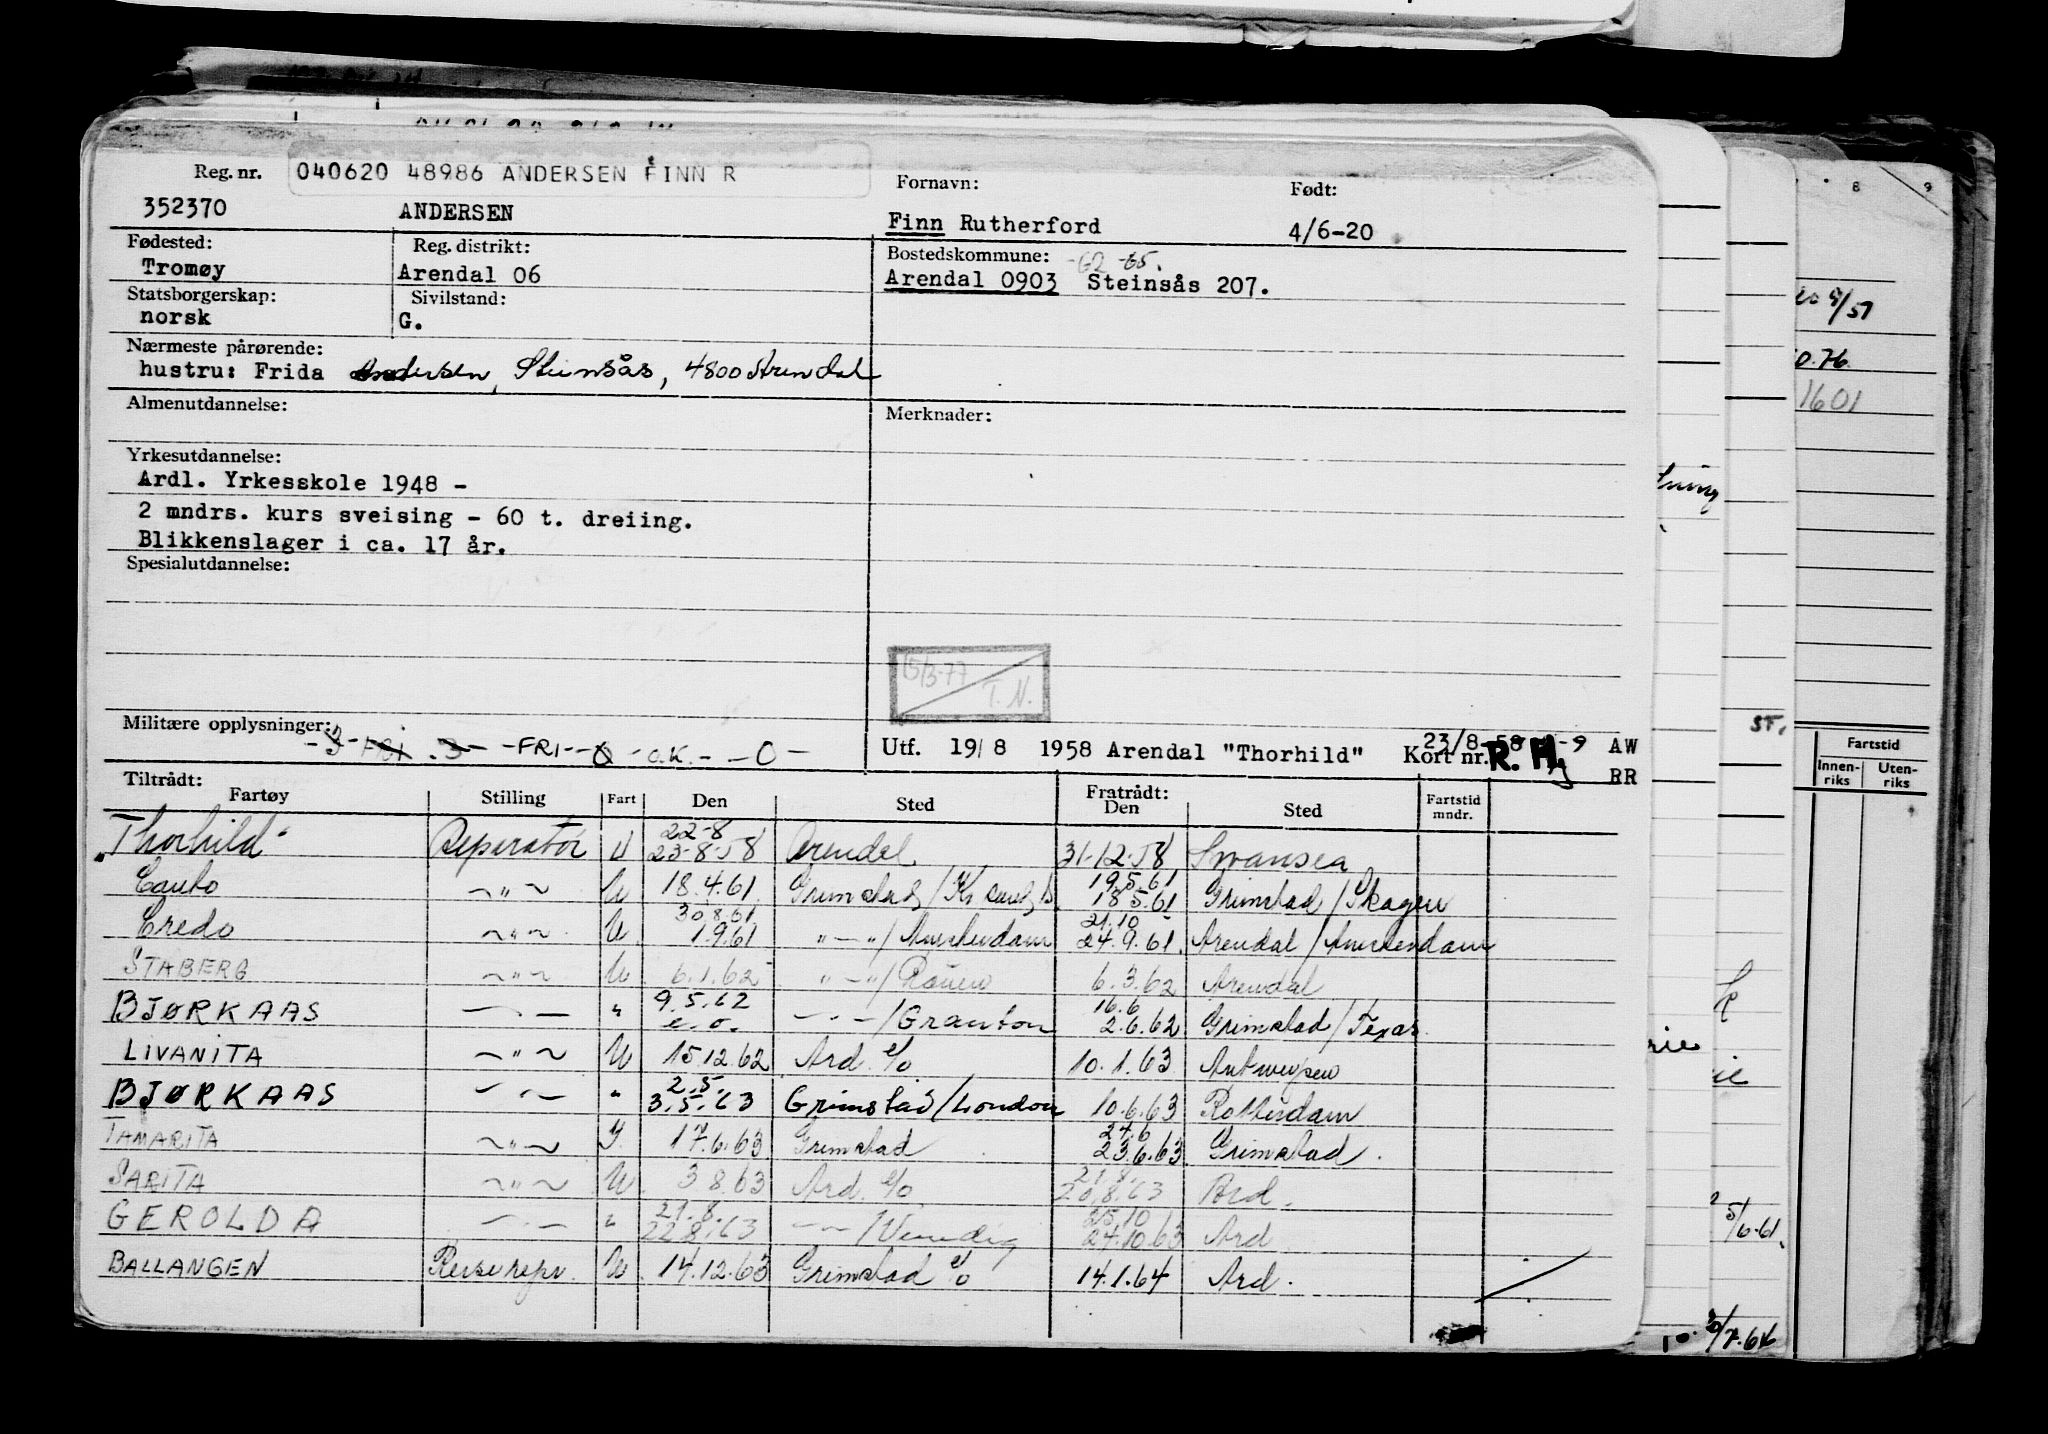 Reg. nr. 040620 48986 ANDERSEN FINN R
Fornavn: Født:
352370 ANDERSEN Finn Rutherford 4/6-20
Fødested: Reg. distrikt: Bostedskommune: -62 -65.
Tromøy Arendal 06 Arendal 0903 Steinsås 207.
Statsborgerskap: Sivilstand:
norsk G.
Nærmeste pårørende:
hustru: Frida Andersen, Steinsås, 4800 Arendal
Almenutdannelse: Merknader:
Yrkesutdannelse:
Ardl. Yrkesskole 1948 -
2 mndrs. kurs sveising - 60 t. dreiing.
Blikkenslager i ca. 17 år.
Spesialutdannelse:
15/3-77
T. N.
Militære opplysninger:
-3- FRI -3- -FRI--O-O.K.- -O-
Utf. 19/8 1958 Arendal "Thorhild" Kort nr. R. H 23/8-58 -9 AW
RR
Tiltrådt: Fratrådt:
Fartøy Stilling Fart Den Sted Den Sted Fartstid mndr.
22-8
"Thorhild" Reparatør U 23-8-58 Arendal 31-12-58 Swansea
19.5.61
" U 18.4.61 Grimstad / 18.5.61 Grimstad / Skagen
30.8.61 21.10
Credo " U 1.9.61 " - " / Amsterdam 24.9.61 Arendal / Amsterdam
STABERG " U 6.1.62 " - " / Rouen 6.3.62 Arendal
9.5.62 16.6
BJØRKAAS " " e.o. " / Granton 2.6.62 Grimstad / Texas
LIVANITA " U 15.12.62 Ard. e/o 10.1.63 Antwerpen
2.5.
BJØRKAAS " " 3.5.63 Grimstad / London 10.6.63 Rotterdam
24.6
TAMARITA " I. 17.6.63 Grimstad 23.6.63 Grimstad.
21.8.
SARITA " U. 3.8.63 Ard. e/o 20.8.63 Ard.
21.8. 25.10
GEROLDA " " 22.8.63 " / Venedig 24.10.63 Ard
BALLANGEN Reiserepr. U. 14.12.63 Grimstad e/o 14.1.64 Ard.
8 9
9/51
0.76
1601
ST.
Fartstid
Innen-riks Uten-riks
5/6-61.
/7.66